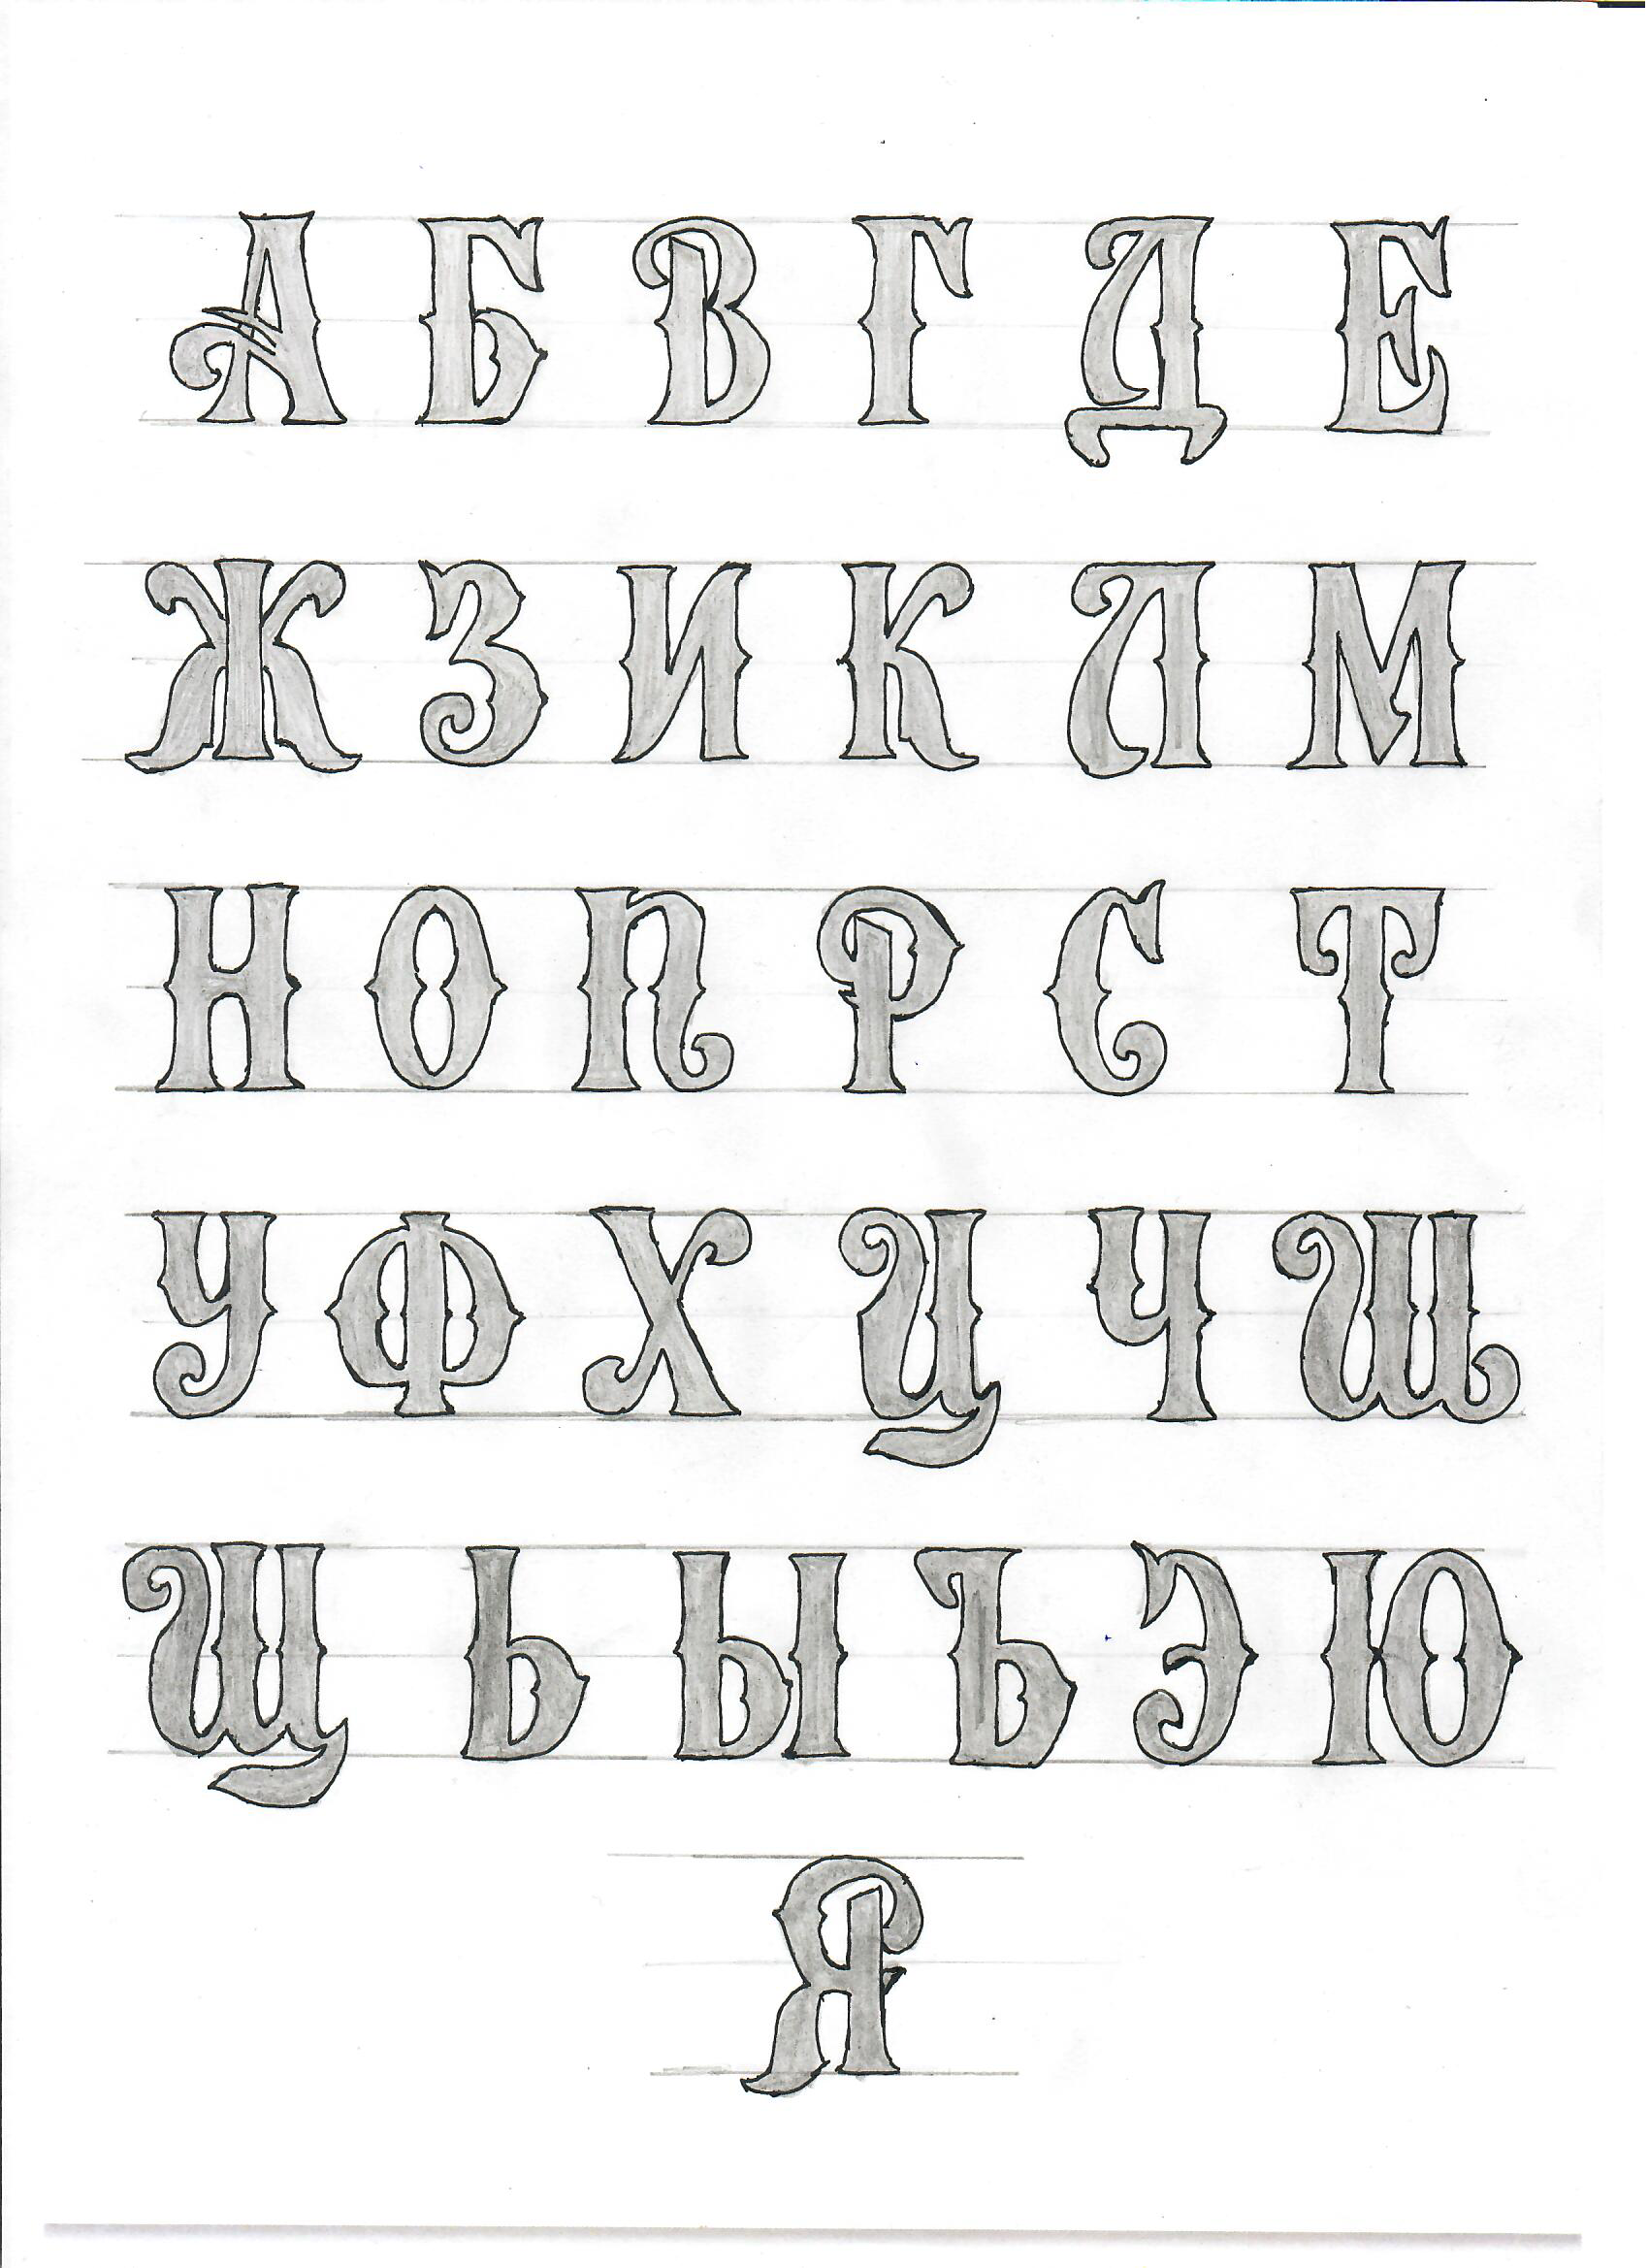 А Б В Г Д Е
Ж З И К Л М
Н О П Р С Т
У Ф Х Ц Ч Ш
Щ Ь Ы Ъ Э Ю
Я